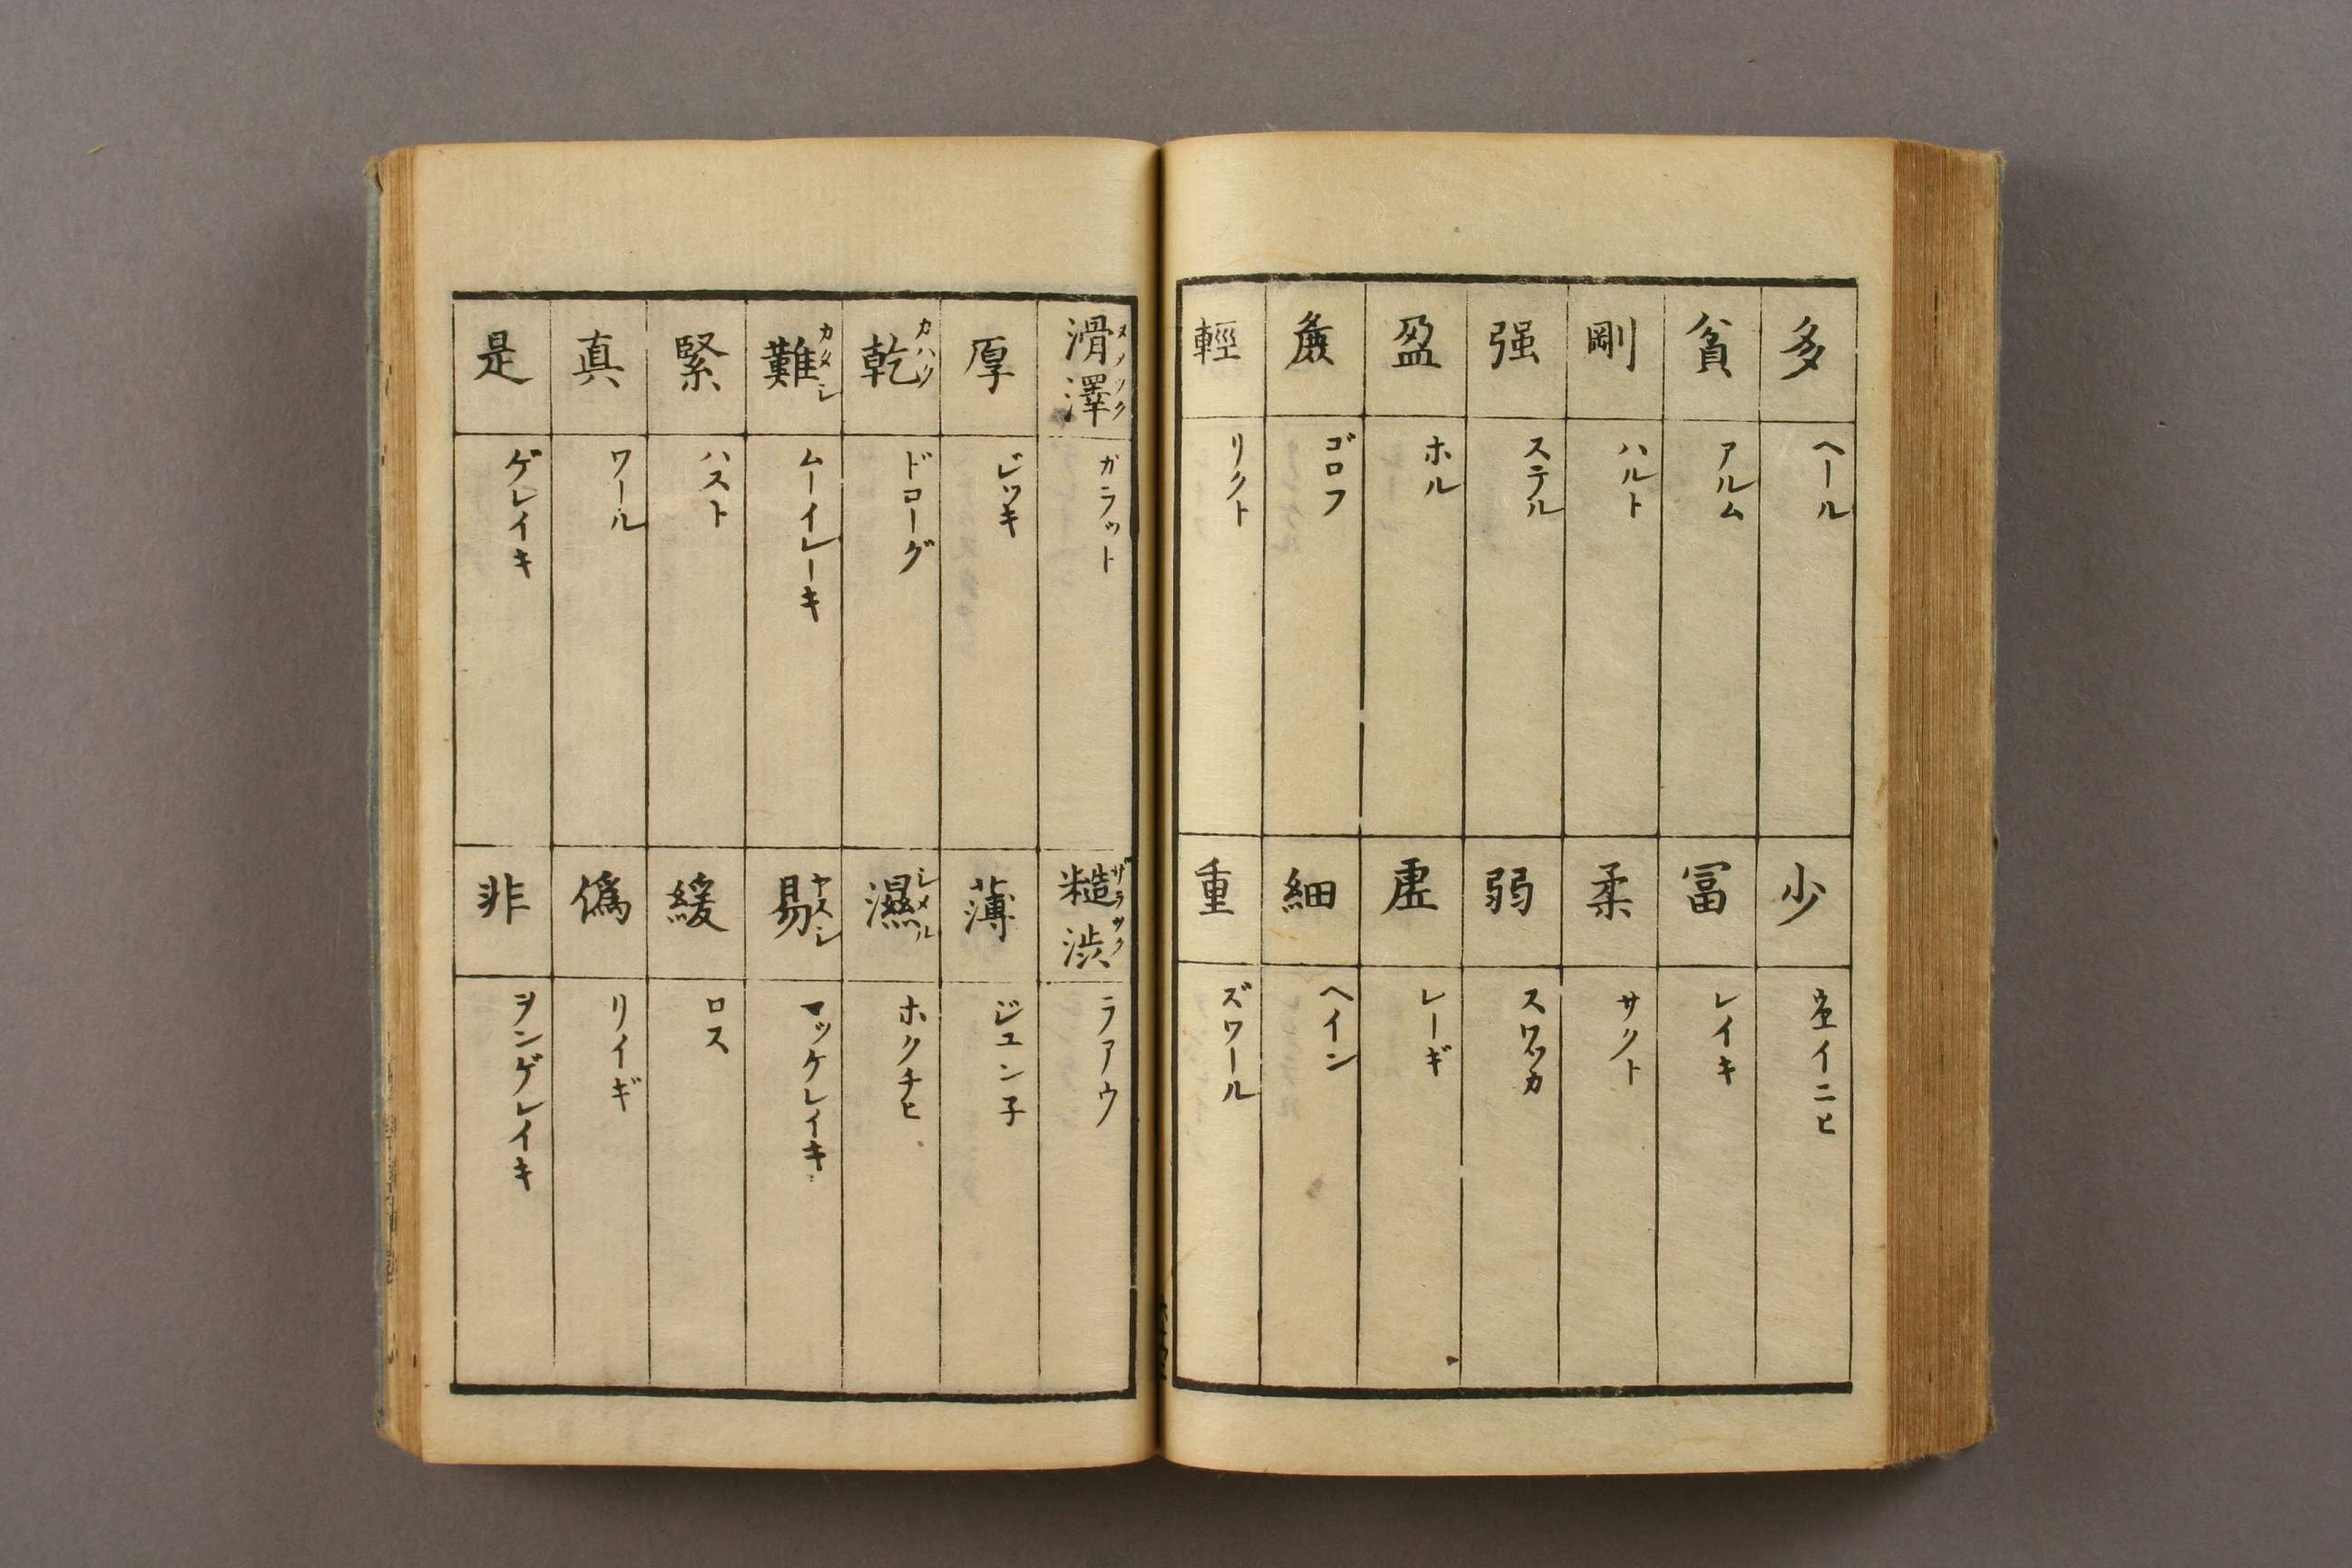 多 ヘール
少 ウエイニヒ
貧 アルム
冨 レイキ
剛 ハルト
柔 サクト
强 ステル
弱 スワッカ
盈 ホル
虚 レーギ
麁 ゴロフ
細 ヘイン
輕 リクト
重 ズワール
滑澤 ガラット
糙渋 ラアウ
厚 ヂッキ
薄 ヂュン子
乾 カハク ドローグ
濕 シメル ホクチヒ
難 カタシ ムーイレーキ
易 ヤスシ マッケレイキ
緊 ハスト
緩 ロス
真 ワール
偽 リイギ
是 ゲレイキ
非 ヲンゲレイキ